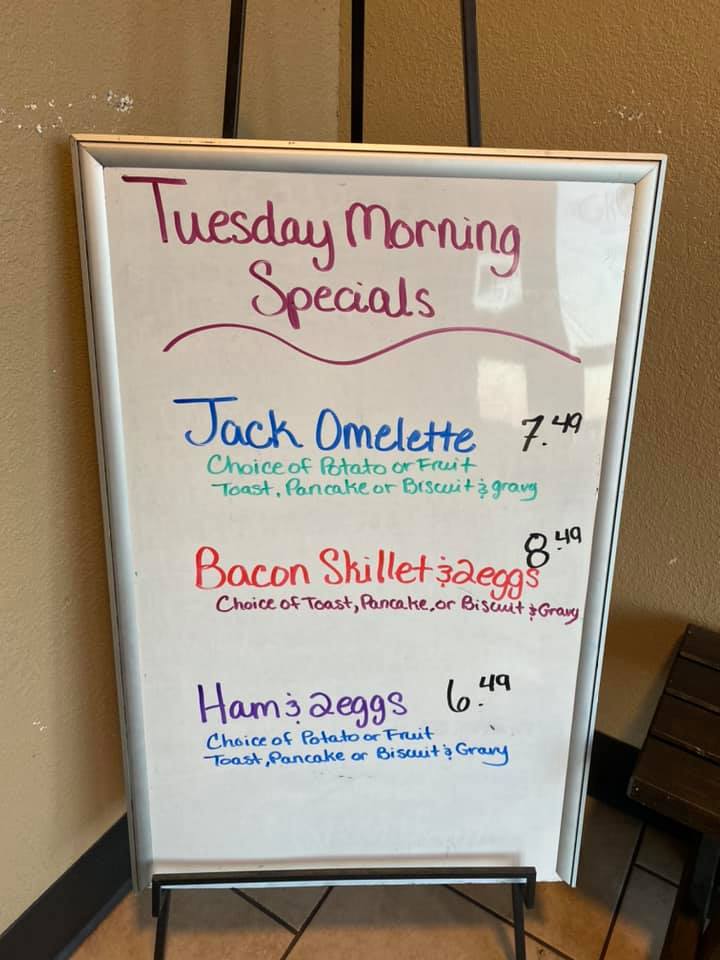 Tuesday Morning
Specials
Jack Omelette 7.49
Choice of Potato or Fruit
Toast, Pancake or Biscuit & gravy
Bacon Skillet & 2eggs 8.49
Choice of Toast, Pancake, or Biscuit & Gravy
Ham & 2eggs 6.49
Choice of Potato or Fruit
Toast, Pancake or Biscuit & Gravy